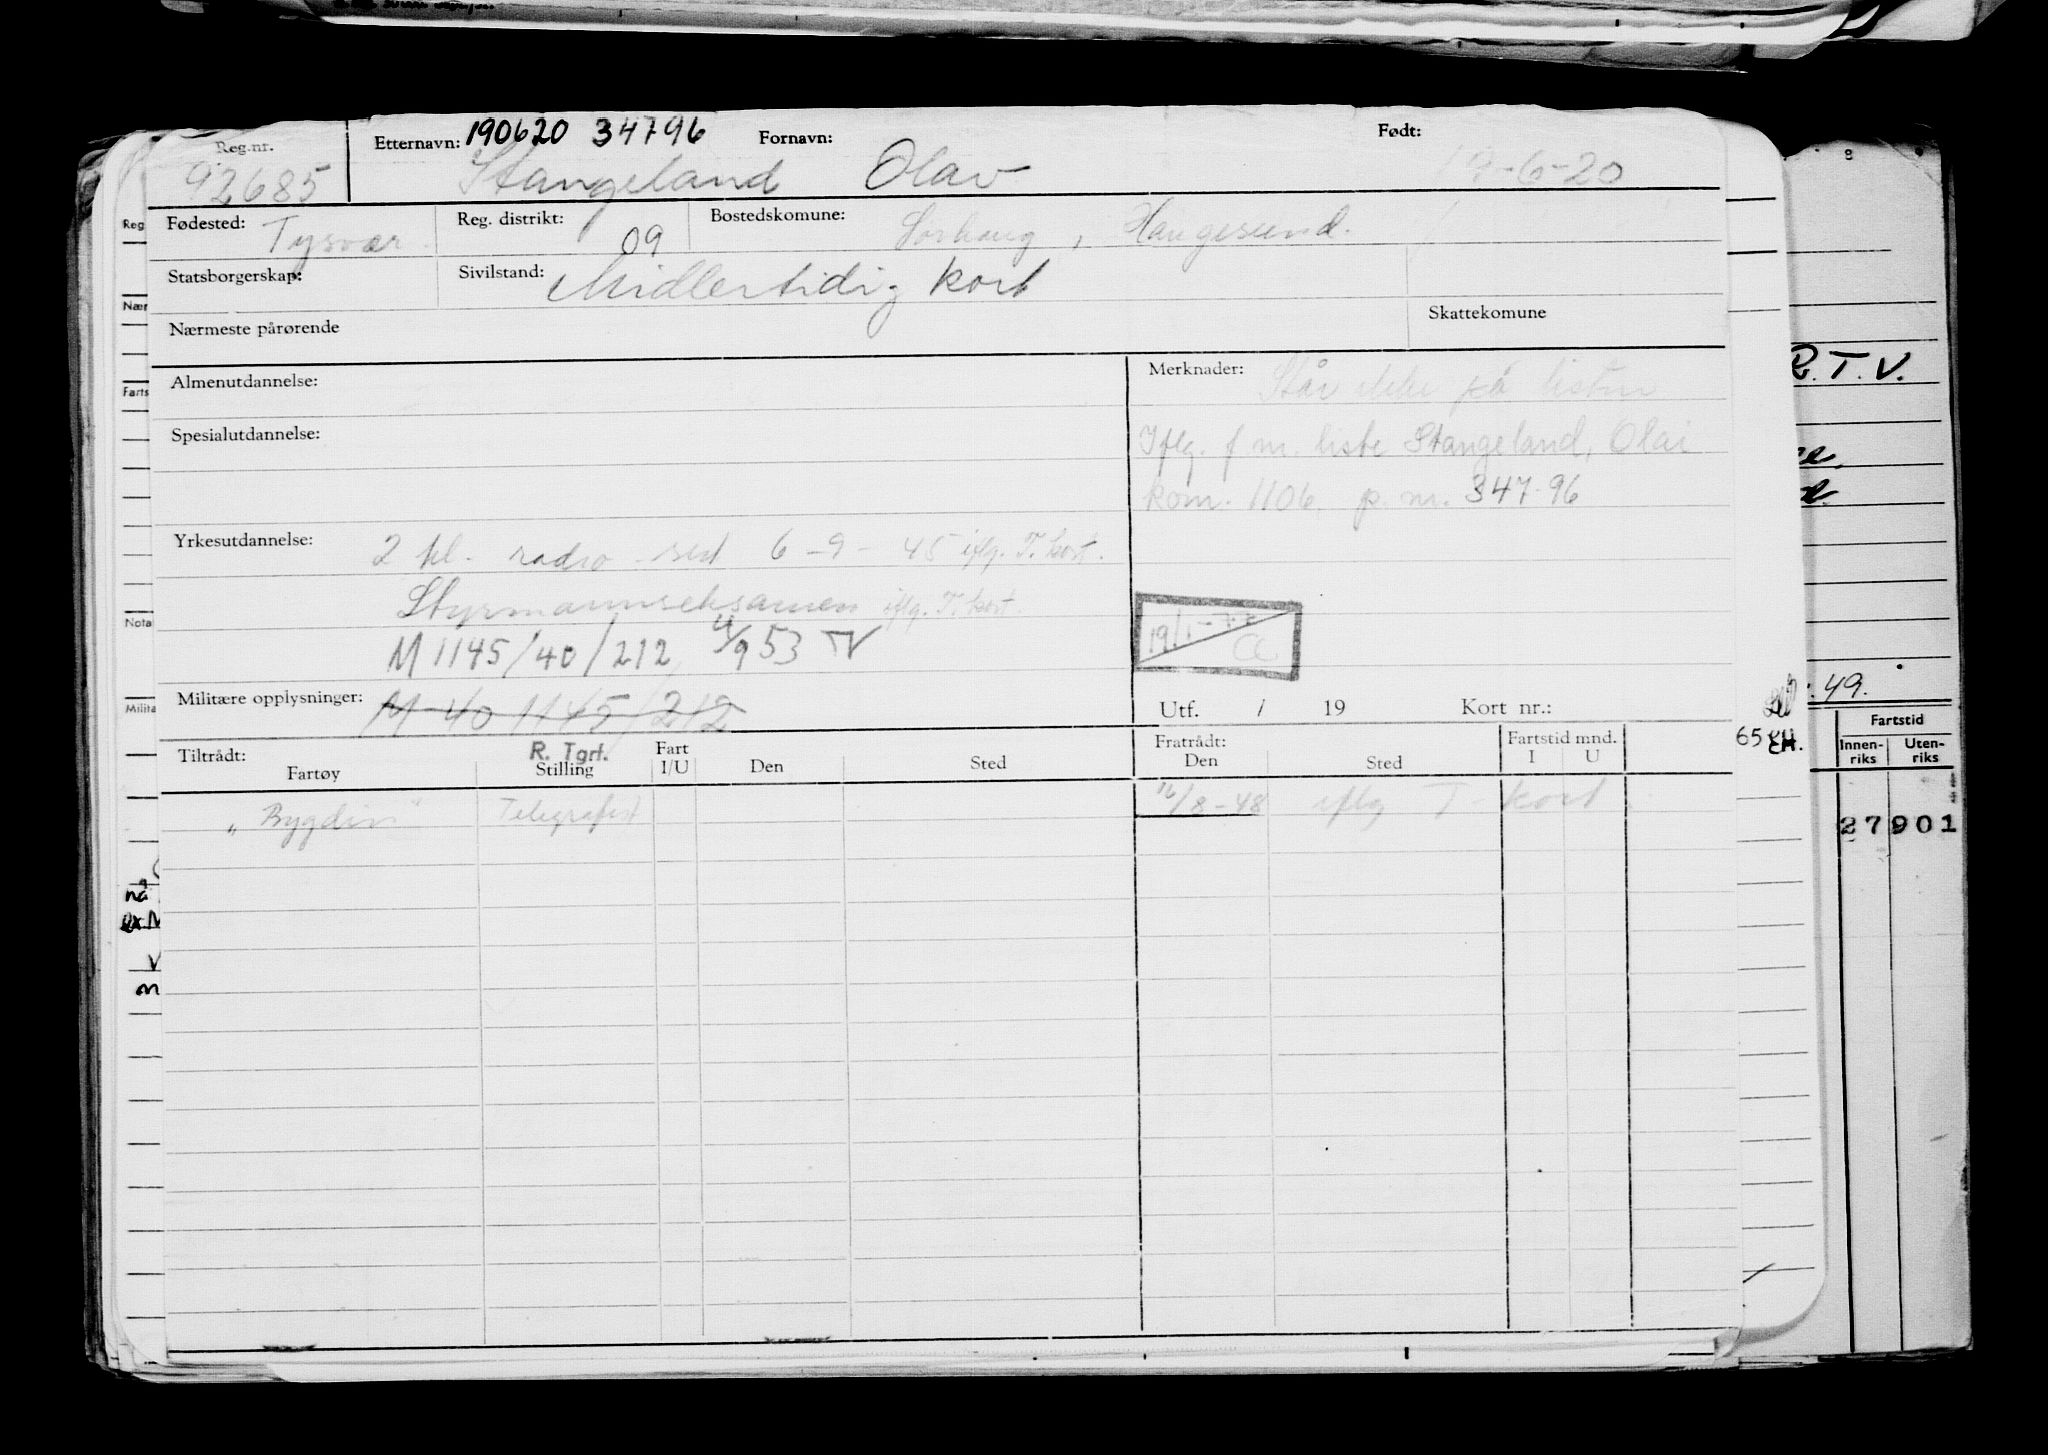 Reg.nr. Etternavn: 190620 34796 Fornavn: Født:
92685 Stangeland Olav 19-6-20
Fødested: Tysvær Reg. distrikt: 09 Bostedskomune: Sørhaug, Haugesund.
Statsborgerskap: Sivilstand: Midlertidig kort
Nærmeste pårørende Skattekomune
Almenutdannelse: Merknader: Står ikke på listen
Spesialutdannelse: Iflg. f.m. liste Stangeland, Olai
kom. 1106. p. nr. 347-96
Yrkesutdannelse: 2 kl. radio sert 6-9-45 iflg. T. kort.
Styrmannseksamen iflg. T. kort.
M 1145/40/212, 4/9 53
19/1-77
Militære opplysninger: M 40 1145/212
Utf. / 19 Kort nr.:
Tiltrådt: R. Tgrf. Fart Fratrådt: Fartstid mnd.
Fartøy Stilling I/U Den Sted Den Sted I U
"Bygdin" Telegrafist 12/8-48 iflg T-kort
Reg
Nær
Farts
Nota
Milita
8
R.T.V.
49.
65
EH.
Fartstid
Innen-riks Uten-riks
27 901